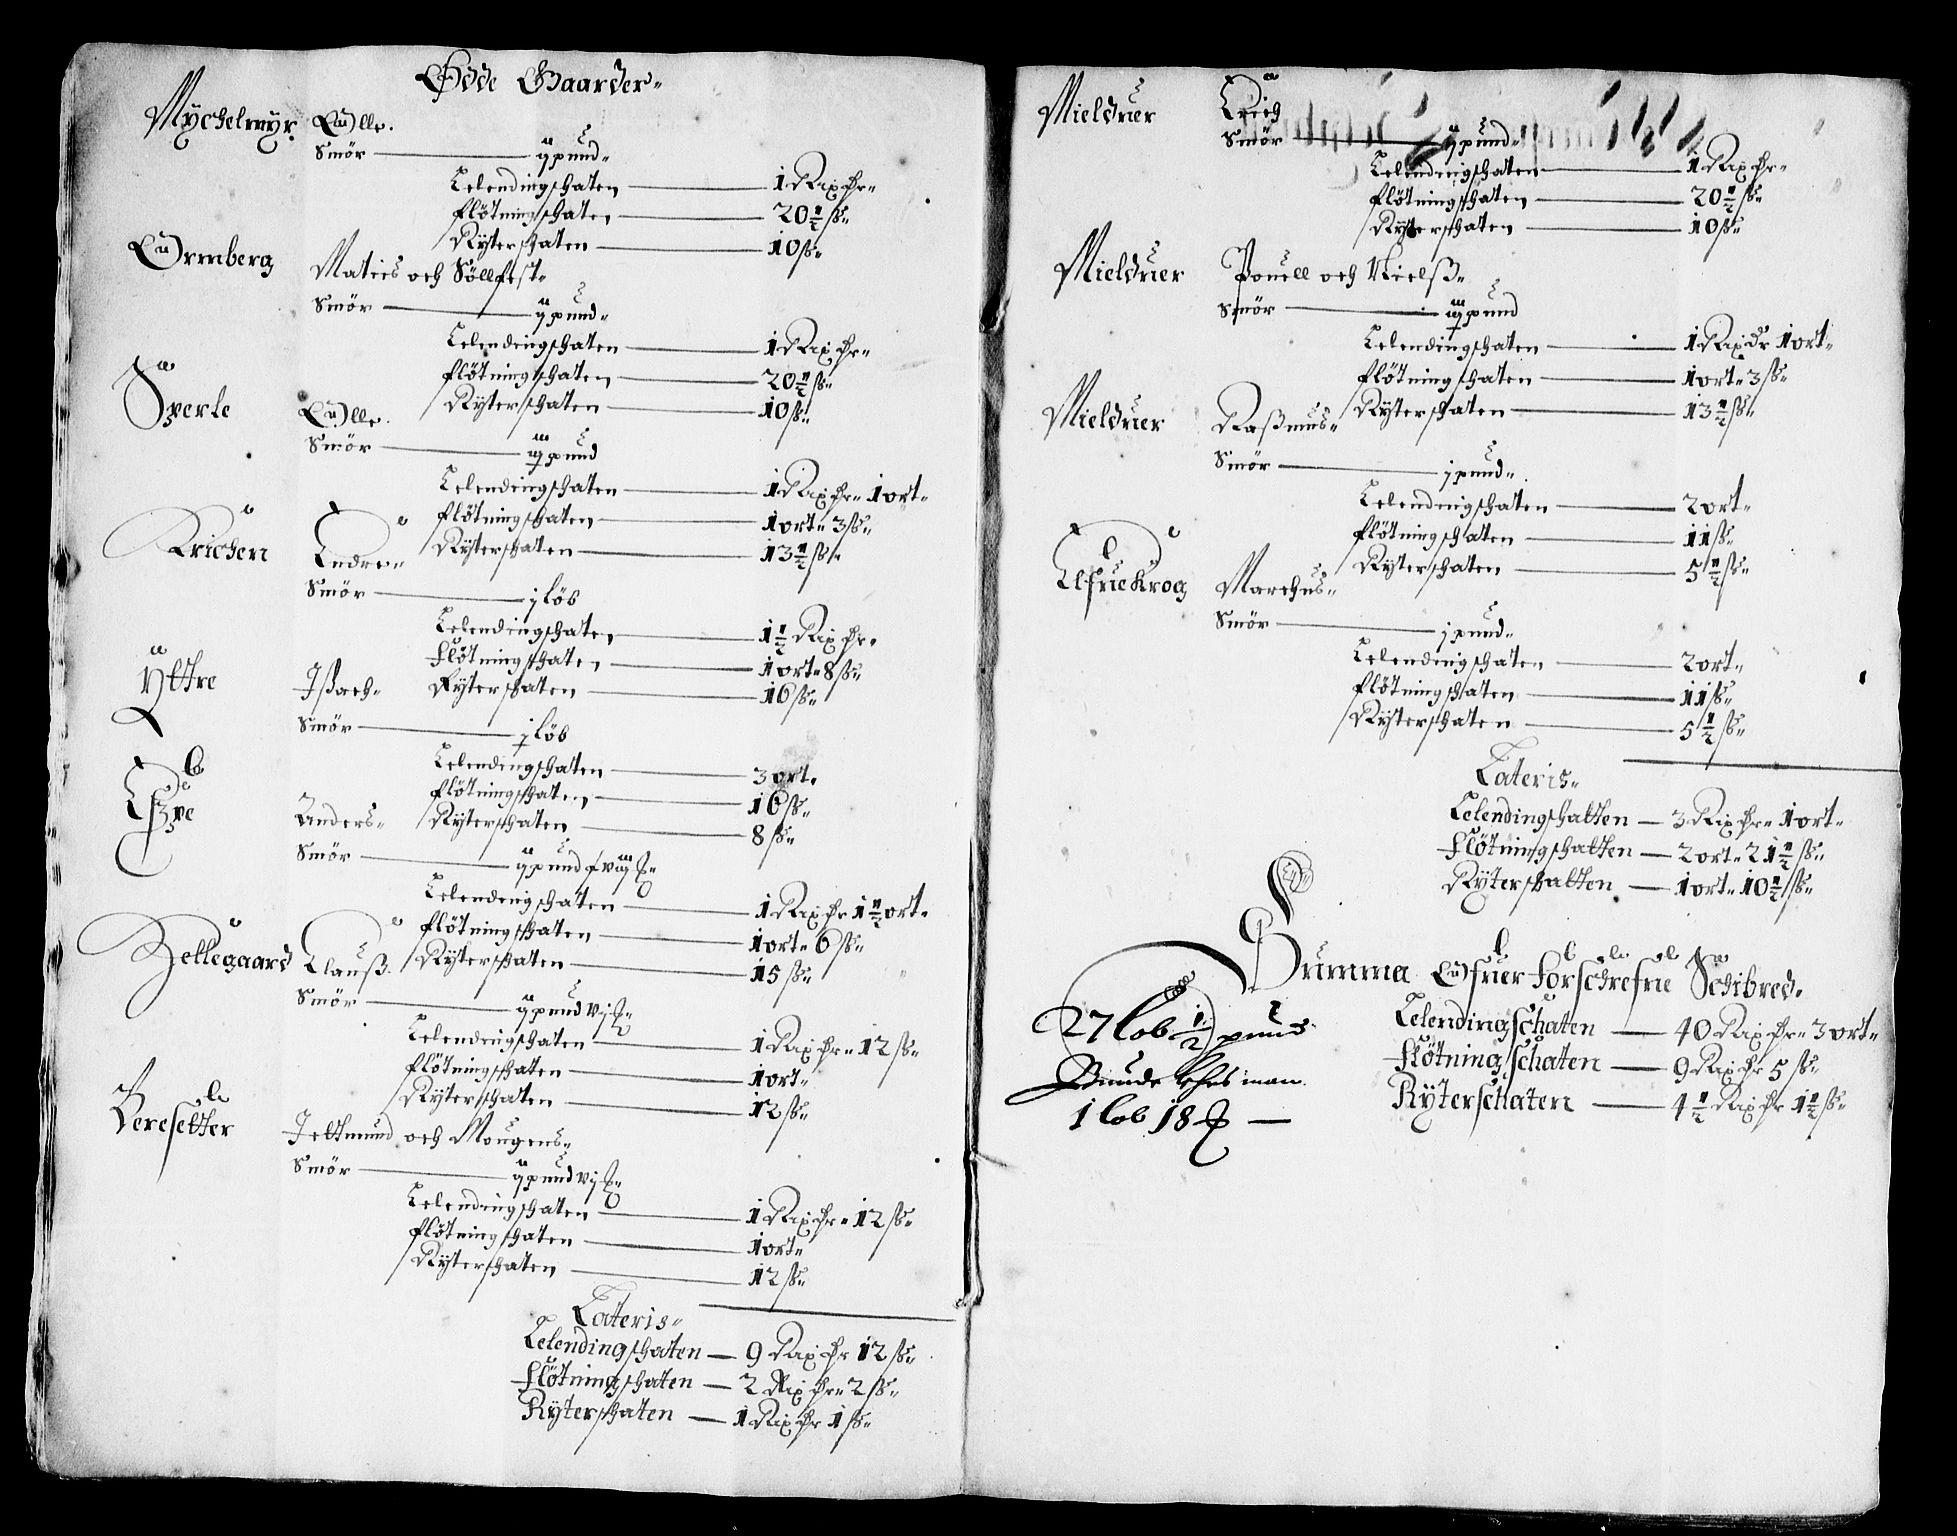 Ødde Gaarder"
Mychelmyr Olle.
Smör — ij pund"
Lelendingschaten — 1 Rix dr"
flötningschaten — 20½ ß"
Ryterschaten — 10 ß"
Ormberg Maties och Söllfest"
Smör — ij pund"
Lelendingschaten — 1 Rix dr"
flötningschaten — 20½ ß"
Ryterschaten — 10 ß"
Sperle Olle.
Smör — iij pund
Lelendingschaten — 1 Rix dr" 1 ort"
flötningschaten — 1 ort" 3 ß"
Ryterschaten — 13½ ß"
Krichen Endre"
Smör — j löb
Lelendingschaten — 1½ Rix dr"
flötningschaten — 1 ort" 8 ß"
Ryterschaten — 16 ß"
Yttre Jßach"
Smör — j löb
Lelendingschaten — 3 ort"
flötningschaten — 16 ß"
Ryterschaten — 8 ß"
Espe Anders"
Smör — ij pund
Lelendingschaten — 1 Rix dr 1½ ort"
flötningschaten — 1 ort" 6 ß"
Ryterschaten — 15 ß"
Hellegaard Clauß.
Smör — ij pund vj
Lelendingschaten — 1 Rix dr" 12 ß"
flötningschaten — 1 ort"
Ryterschaten — 12 ß"
Beresetter Jettmund och Mougens"
Smör — ij pund vj
Lelendingschaten — 1 Rix dr" 12 ß"
flötningschaten — 1 ort"
Ryterschaten — 12 ß"
Lateris"
Lelendingschaten — 9 Rix dr 12 ß"
flötningschaten — 2 Rix dr" 2 ß"
Ryterschaten — 1 Rix dr 1 ß"
Mieldruer Erich
Smör — ij pund"
Lelendingschaten — 1 Rix dr"
flötningschaten — 20½ ß"
Ryterschaten — 10 ß"
Mieldruer Pouell och Nielß"
Smör — iij pund
Lelendingschaten — 1 Rix dr 1 ort"
flötningschaten — 1 ort" 3 ß"
Ryterschaten — 13½ ß"
Mieldruer Raßmus"
Smör — j pund"
Lelendingschaten — 2 ort"
flötningschaten — 11 ß"
Ryterschaten — 5½ ß"
Elfuekrog Marchus"
Smör — j pund"
Lelendingschaten — 2 ort"
flötningschaten — 11 ß"
Ryterschaten — 5½ ß"
Lateris"
Lelendingschatten — 3 Rix dr" 1 ort"
flötningschatten — 2 ort" 21½ ß"
Ryterschatten — 1 ort" 10½ ß"
Summa Ofuer forschrefne Schibred"
Lelendingschaten — 40 Rix dr" 3 ort"
flötningschaten — 9 Rix dr 5 ß"
Ryterschaten — 4½ Rix dr 1½ ß"
27 lob ½ pund
Munde lehns man
1 lob 18 —